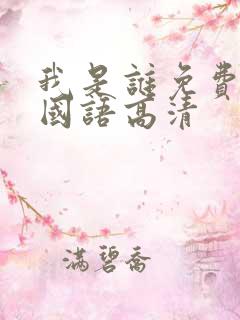 我是誰免費
國語高清
滿碧喬